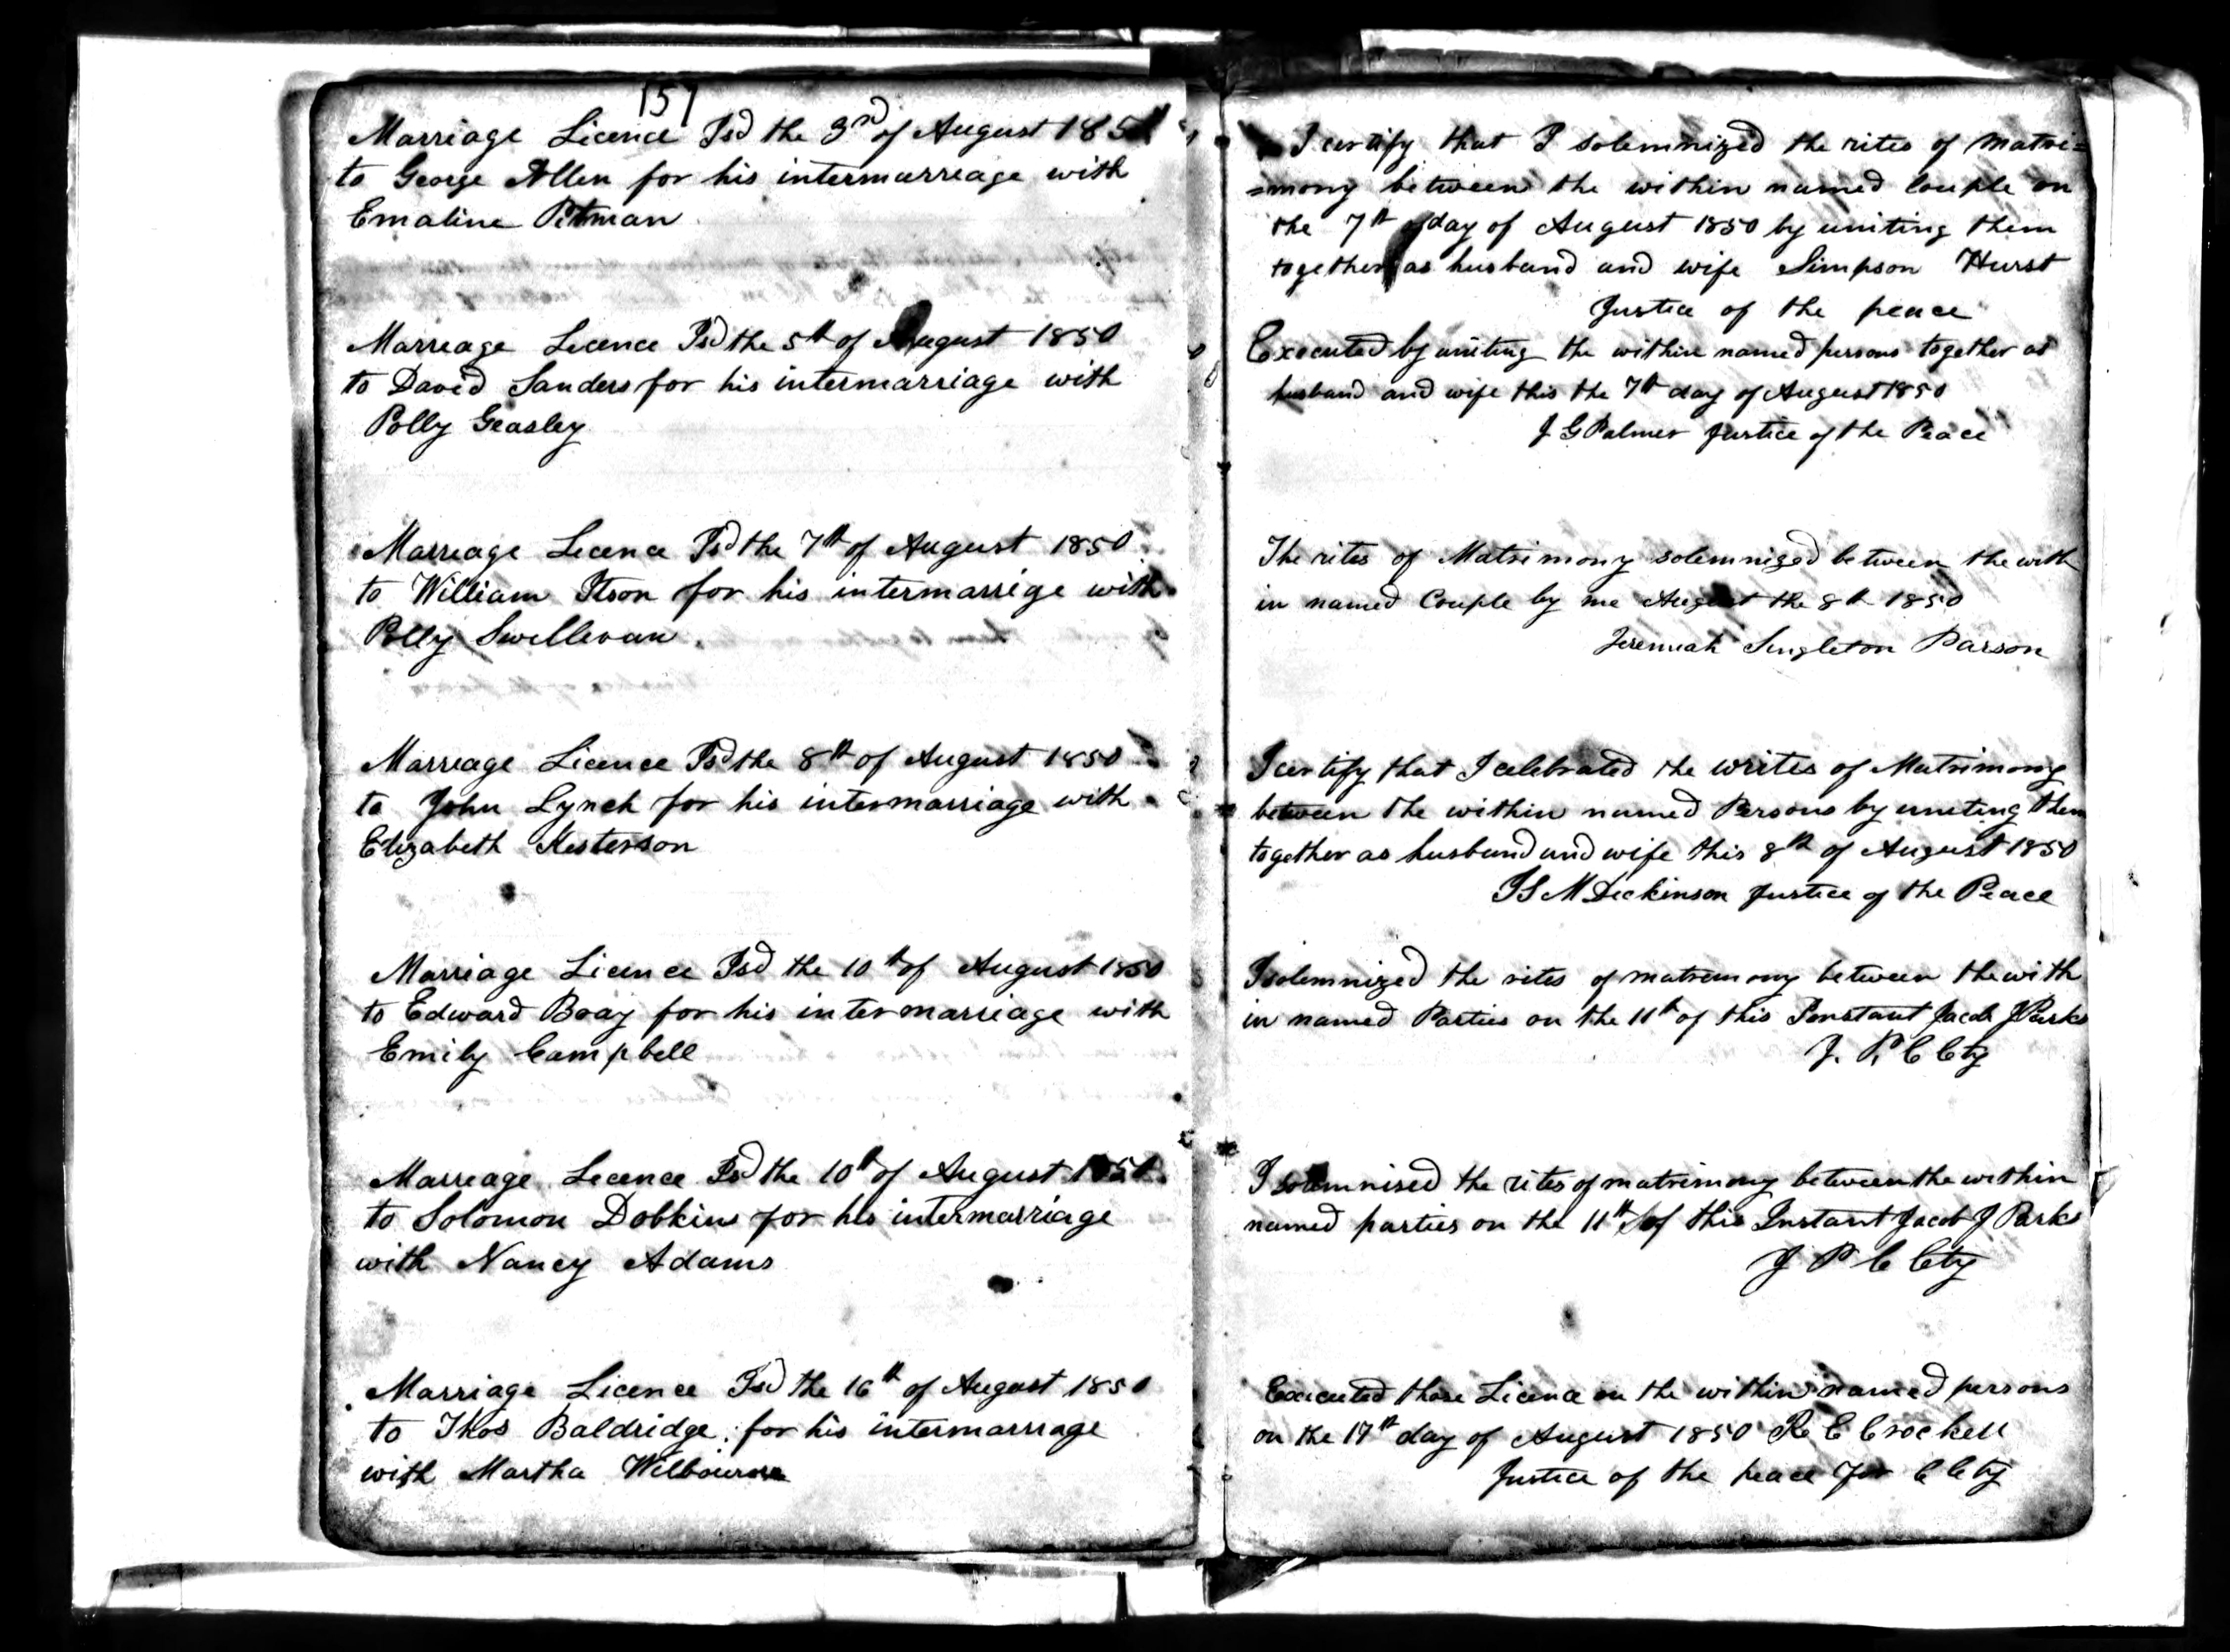 157
Marriage Licence Isd the 3rd of August 185
to George Allen for his intermarreage with
Emaline Pitman
Marreage Licence Isd the 5th of August 1850
to David Sanders for his intermarriage with
Polly Geasley
Marreage Licence Isd the 7th of August 1850
to William Itson for his intermarrige with
Polly Swillevan
Marreage Licence Isd the 8th of August 1850
to John Lynch for his intermarriage with
Elizabeth Kesterson
Marriage Licence Isd the 10th of August 1850
to Edward Bray for his intermarriage with
Emily Campbell
Marreage Lecence Isd the 10th of August 1850
to Solomon Dobkins for his intermarriage
with Nancy Adams
Marriage Licence Isd the 16th of August 1850
to Thos Baldridge for his intermarrage
with Martha Wilbourne
I certify that I solemnized the rites of matri=
=mony between the within named couple on
the 7th day of August 1850 by uniting them
together as husband and wife Simpson Hurst
Justice of the peace
Executed by uniting the within named persons together as
husband and wife this the 7th day of August 1850
J G Palmer Justice of the Peace
The rites of Matrimony solemnized between the with
in named Couple by me August the 8th 1850
Jeremiah Singleton Parson
I certify that I celebrated the writes of Matrimony
between the within named Persons by uniting them
together as husband and wife this 8th of August 1850
I S M Dickinson Justice of the Peace
I solemnized the rites of matremony between the with
in named Parties on the 11th of this Instant Jacob J Parks
J. P. C Cty
I solemnised the rites of matrimony between the within
named parties on the 11th of this Instant Jacob J Parks
J P C Cty
Executed these Licence on the within named persons
on the 17th day of August 1850 R E Crockett
Justice of the peace for C Cty